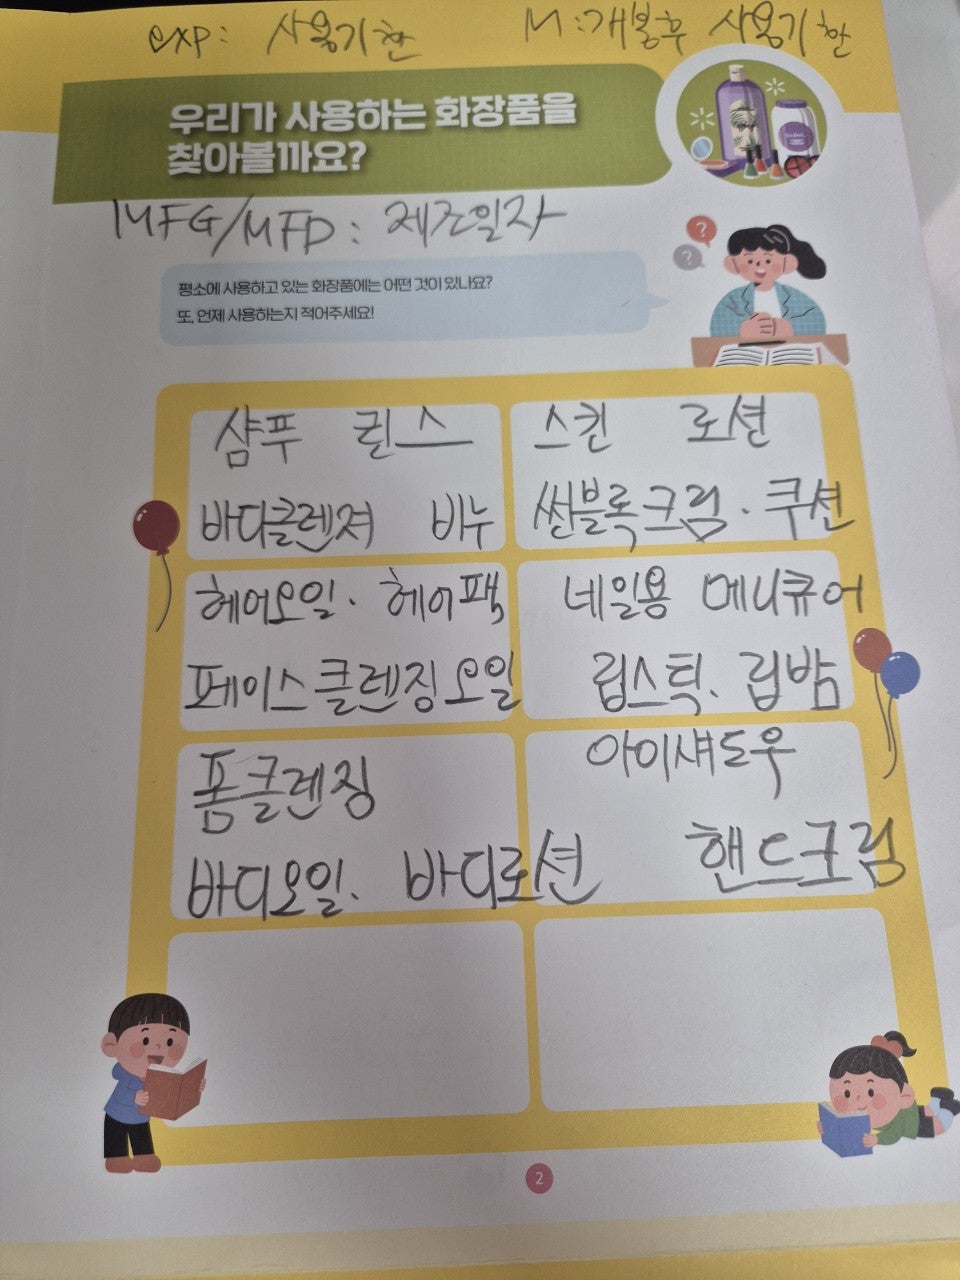 exp: 사용기한 M: 개봉후 사용기한
우리가 사용하는 화장품을
찾아볼까요?
MFG/MFD: 제조일자
평소에 사용하고 있는 화장품에는 어떤 것이 있나요?
또, 언제 사용하는지 적어주세요!
샴푸 린스 스킨 로션
바디클렌져 비누 썬블록크림·쿠션
헤어오일· 헤어팩 네일용 메니큐어
페이스클렌징오일 립스틱. 립밤
폼클렌징 아이섀도우
바디오일. 바디로션 핸드크림
2